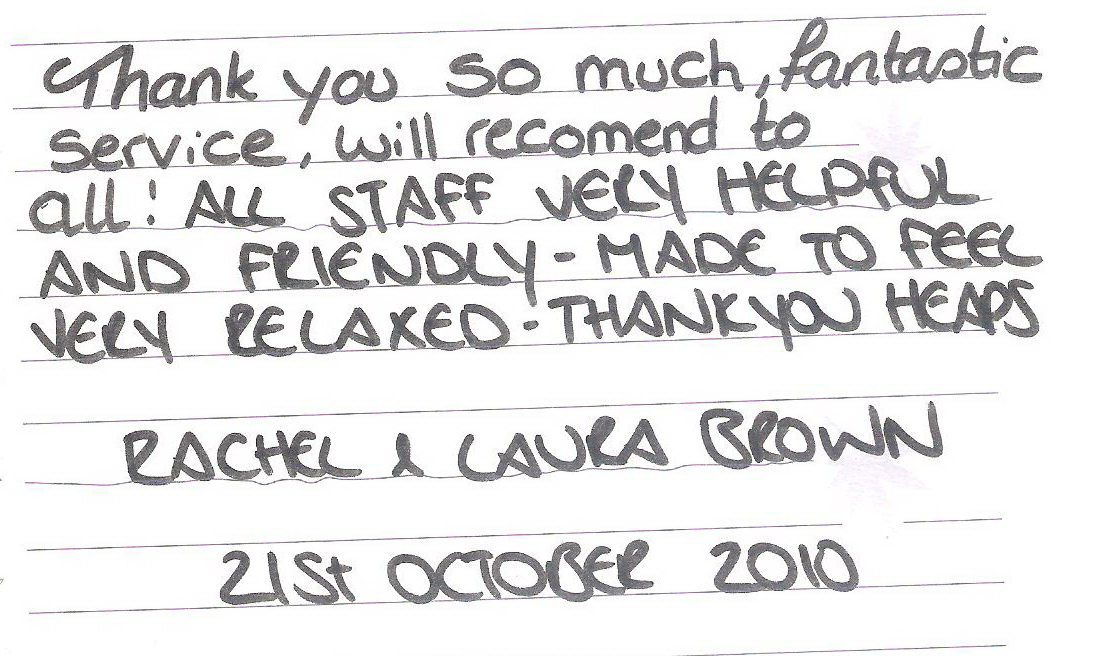 Thank you so much, fantastic
service, will recomend to
all! ALL STAFF VERY HELPFUL
AND FRIENDLY - MADE TO FEEL
VERY RELAXED - THANKYOU HEAPS
RACHEL & LAURA BROWN
21st OCTOBER 2010